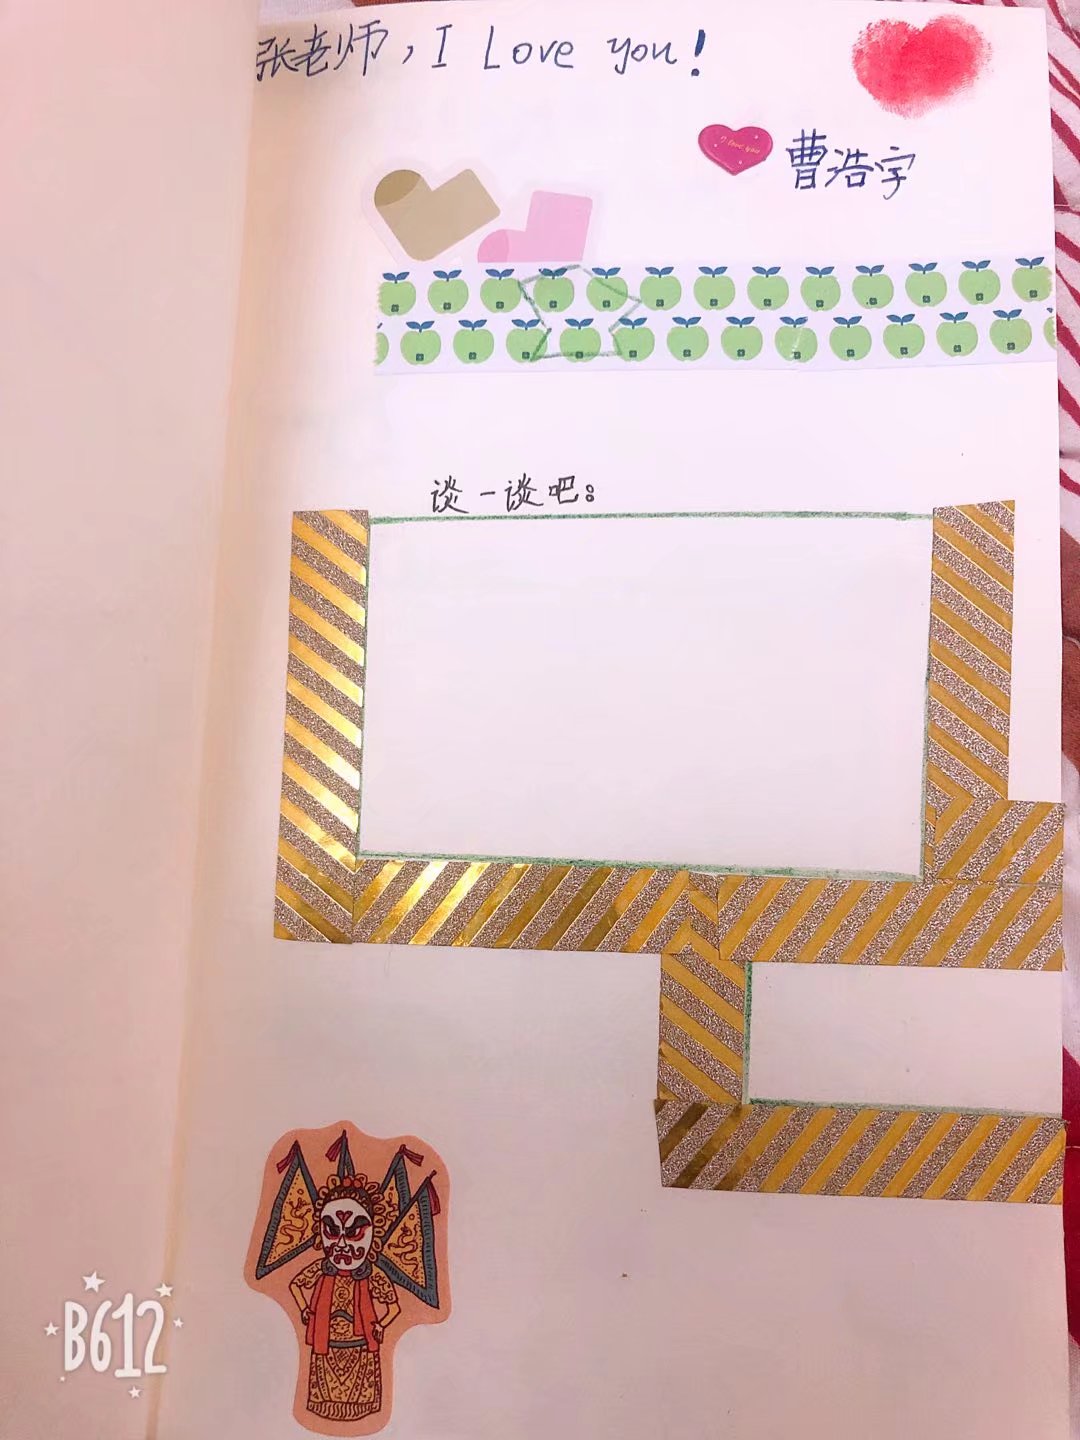 张老师,I Love you!
I love you
曹浩宇
谈一谈吧:
B612